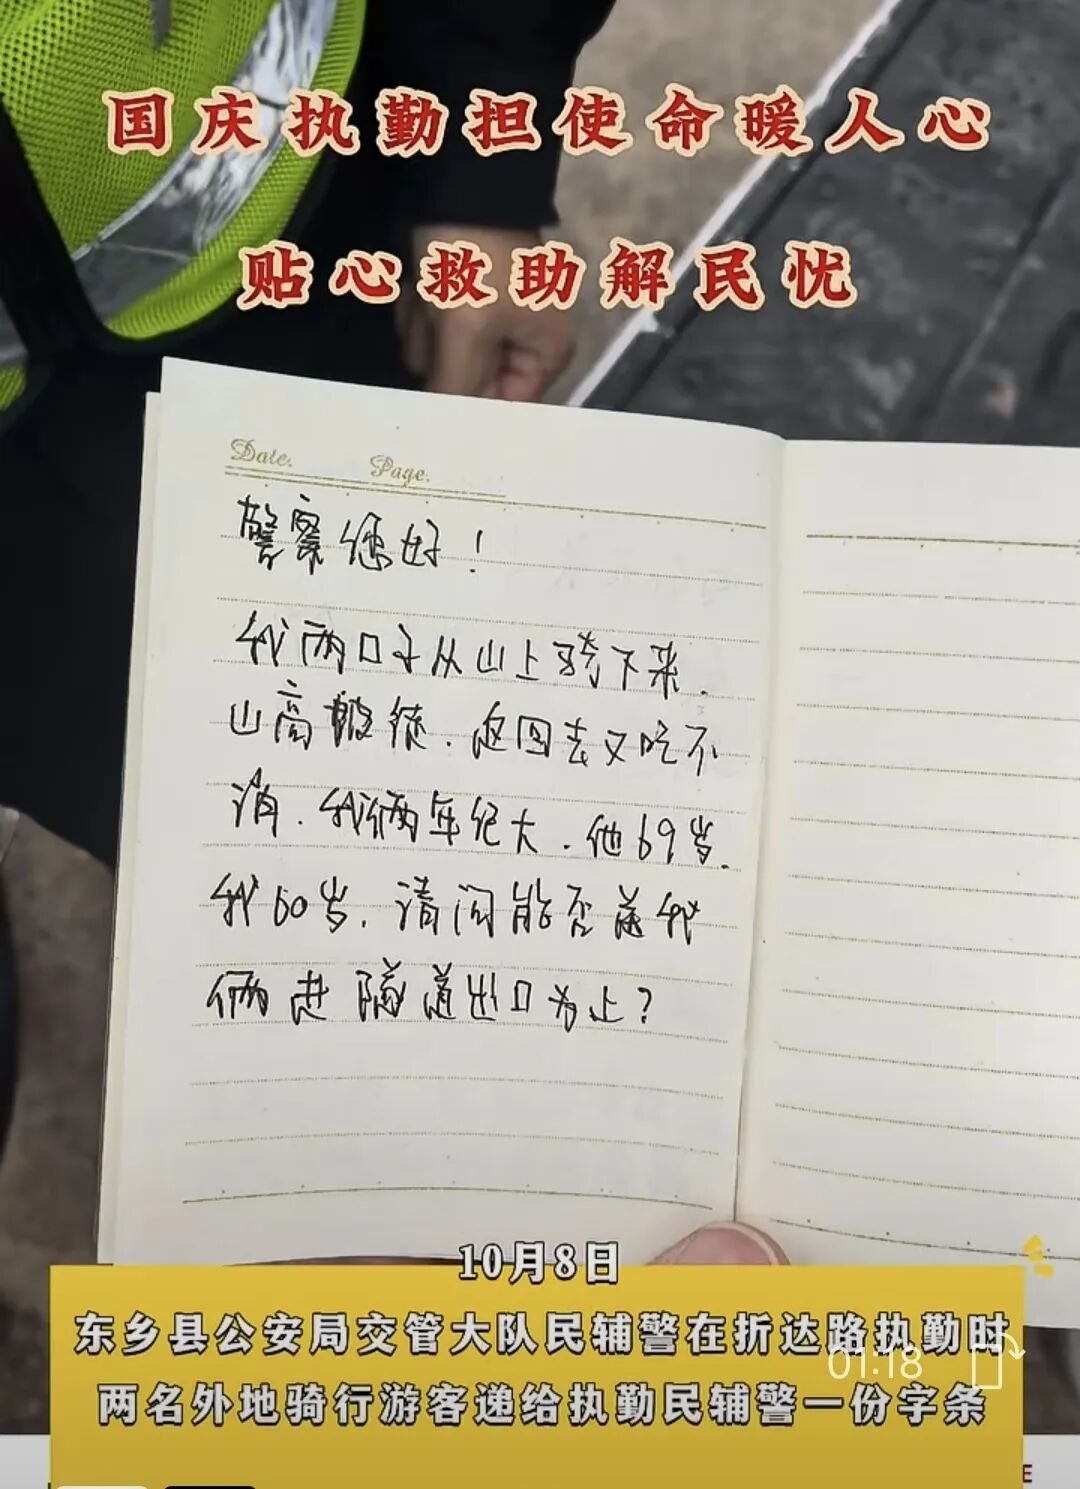 国庆执勤担使命暖人心
贴心救助解民忧
Date.
Page.
警察您好!
我两口子从山上骑下来.
山高坡陡.返回去又吃不
消.我俩年纪大.他69岁.
我60岁.请问能否送我
俩进隧道出口为止?
10月8日
东乡县公安局交管大队民辅警在折达路执勤时
01:18
两名外地骑行游客递给执勤民辅警一份字条
E